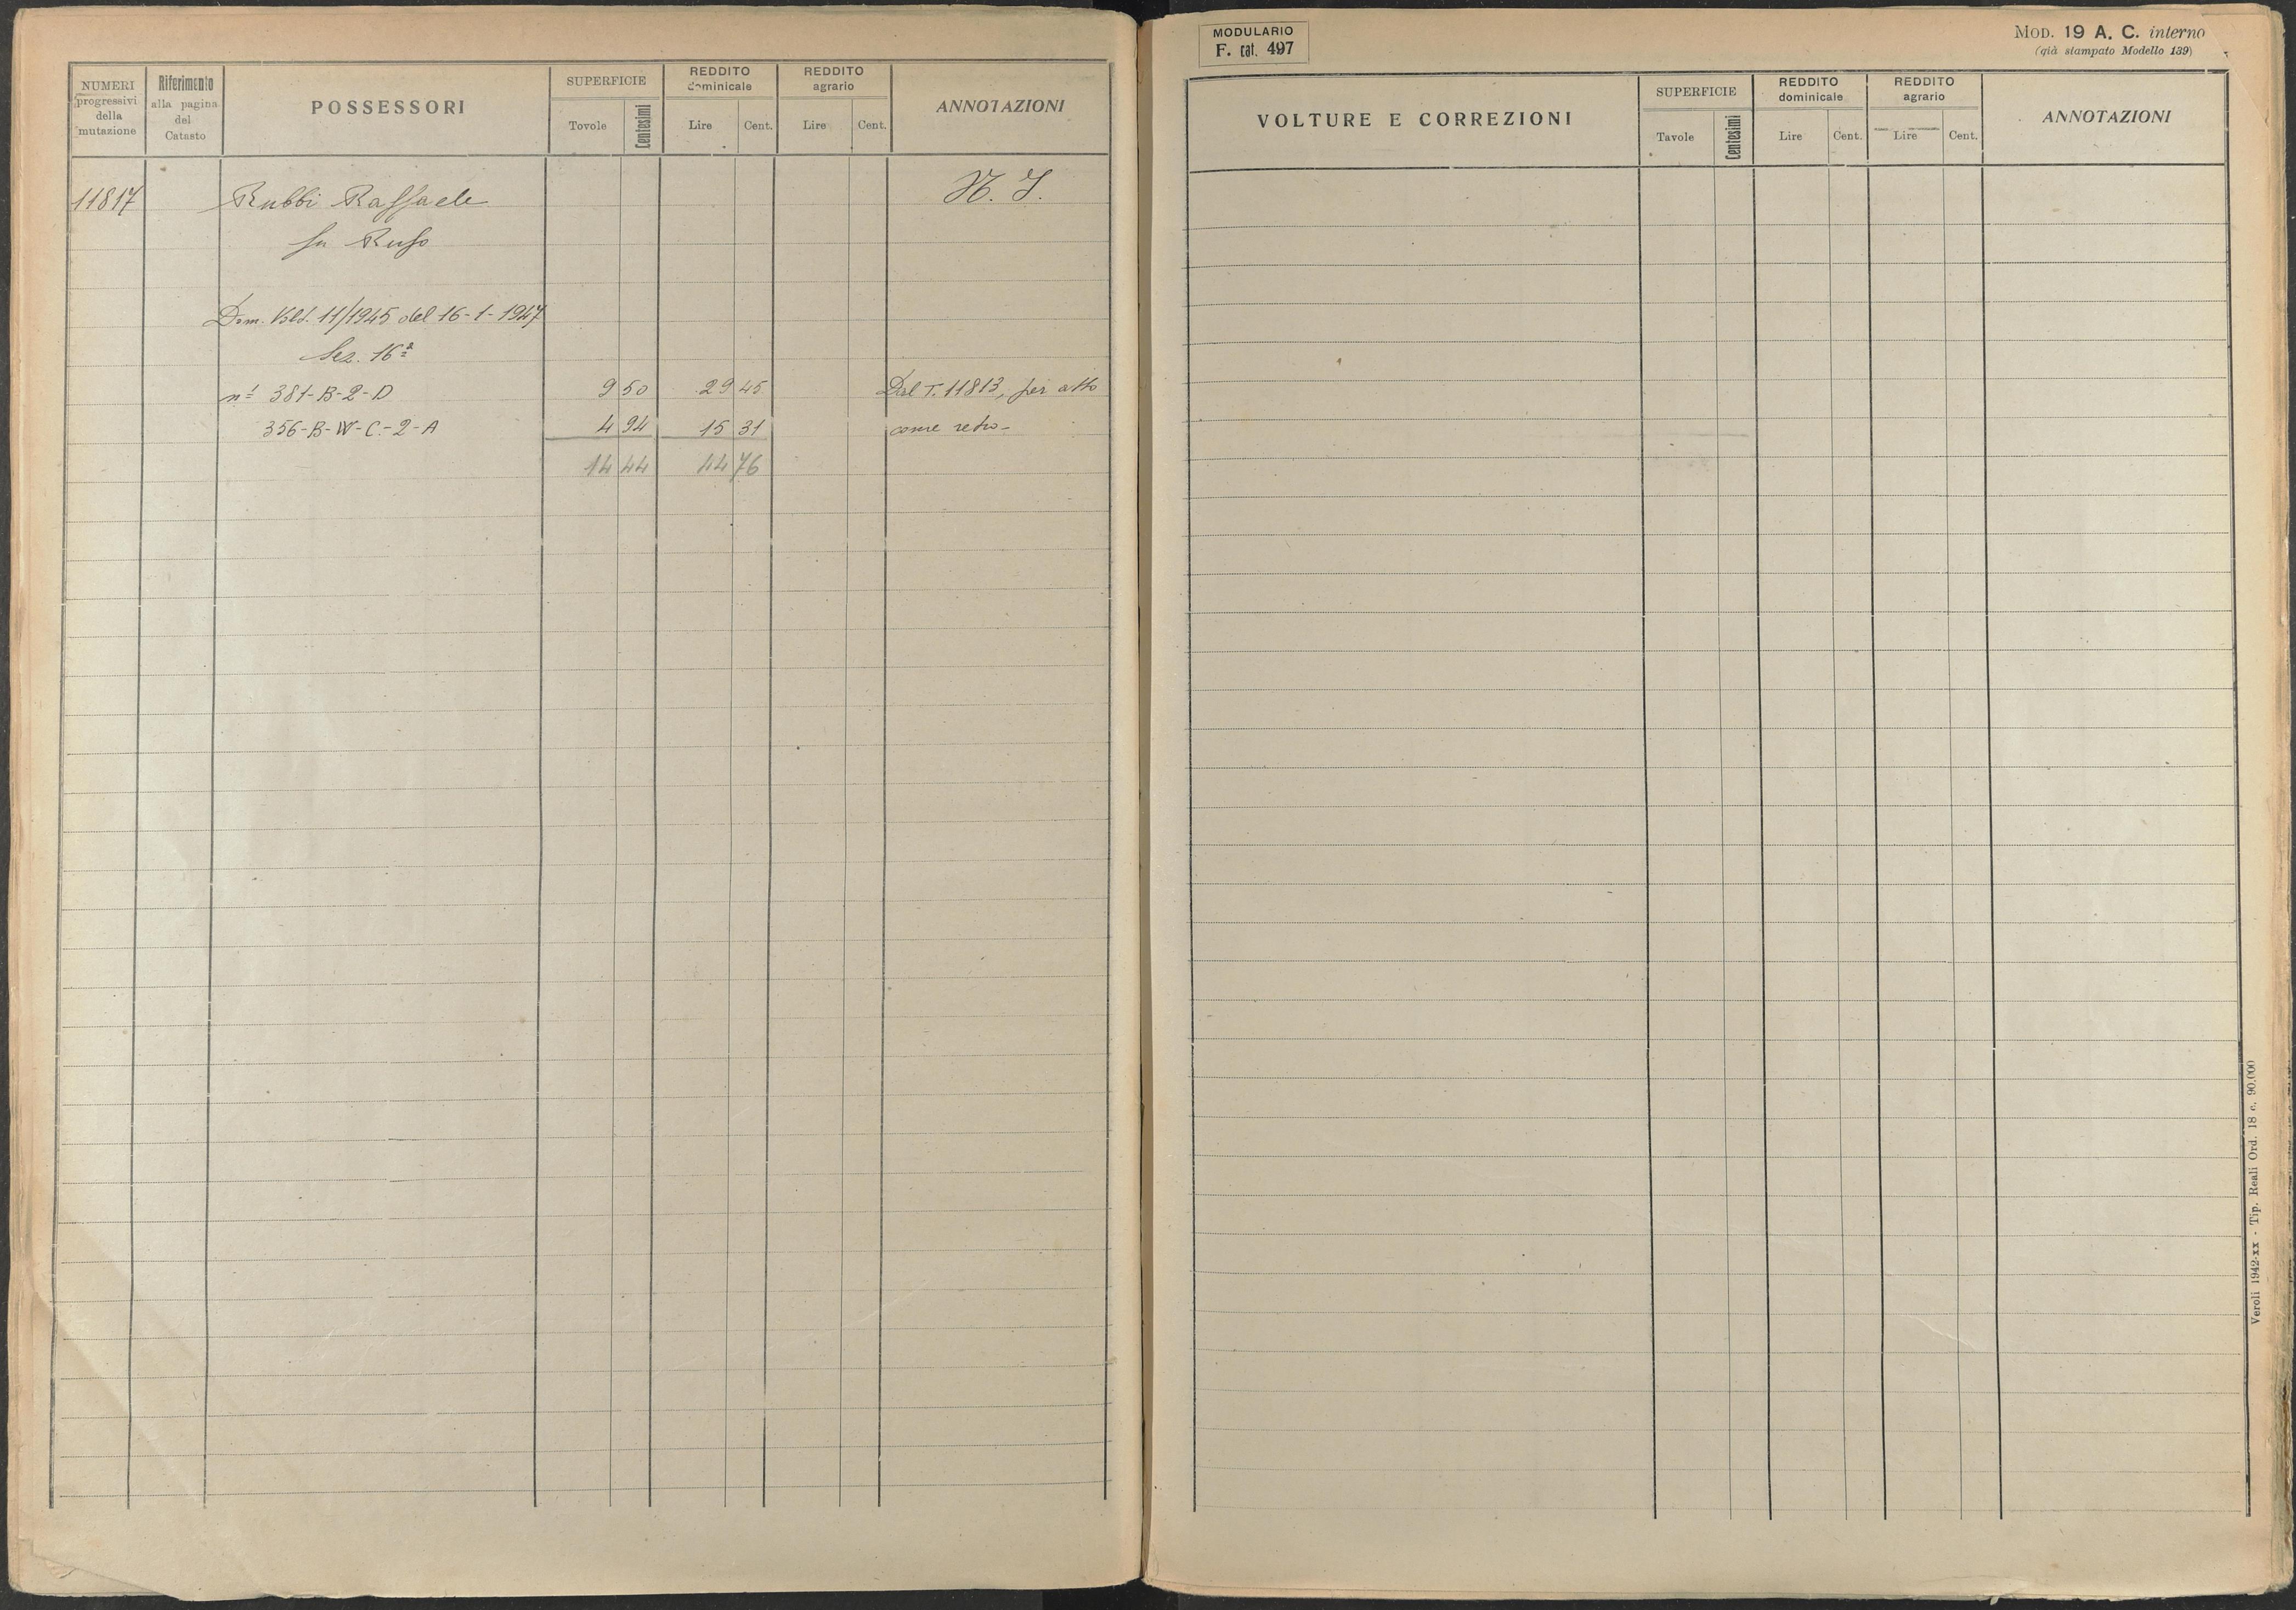 NUMERI progressivi della mutazione
Riferimento alla pagina del Catasto
POSSESSORI
SUPERFICIE
Tovole Centesimi
REDDITO dominicale
Lire Cent.
REDDITO agrario
Lire Cent.
ANNOTAZIONI
11817 Rubbi Raffaele N. I.
fu Rufo
Dom. Volt. 11/1945 del 16-1-1947
Sez. 16ª
nⁱ 381-B-2-D 9 50 29 45 Dal T. 11813, per atto
356-B-W-C-2-A 4 94 15 31 come retro-
14 44 44 76
MODULARIO
F. cat. 497
MOD. 19 A. C. interno
(già stampato Modello 139)
VOLTURE E CORREZIONI
SUPERFICIE
Tavole Centesimi
REDDITO dominicale
Lire Cent.
REDDITO agrario
Lire Cent.
ANNOTAZIONI
Veroli 1942-XX - Tip. Reali Ord. 18 c. 90.000